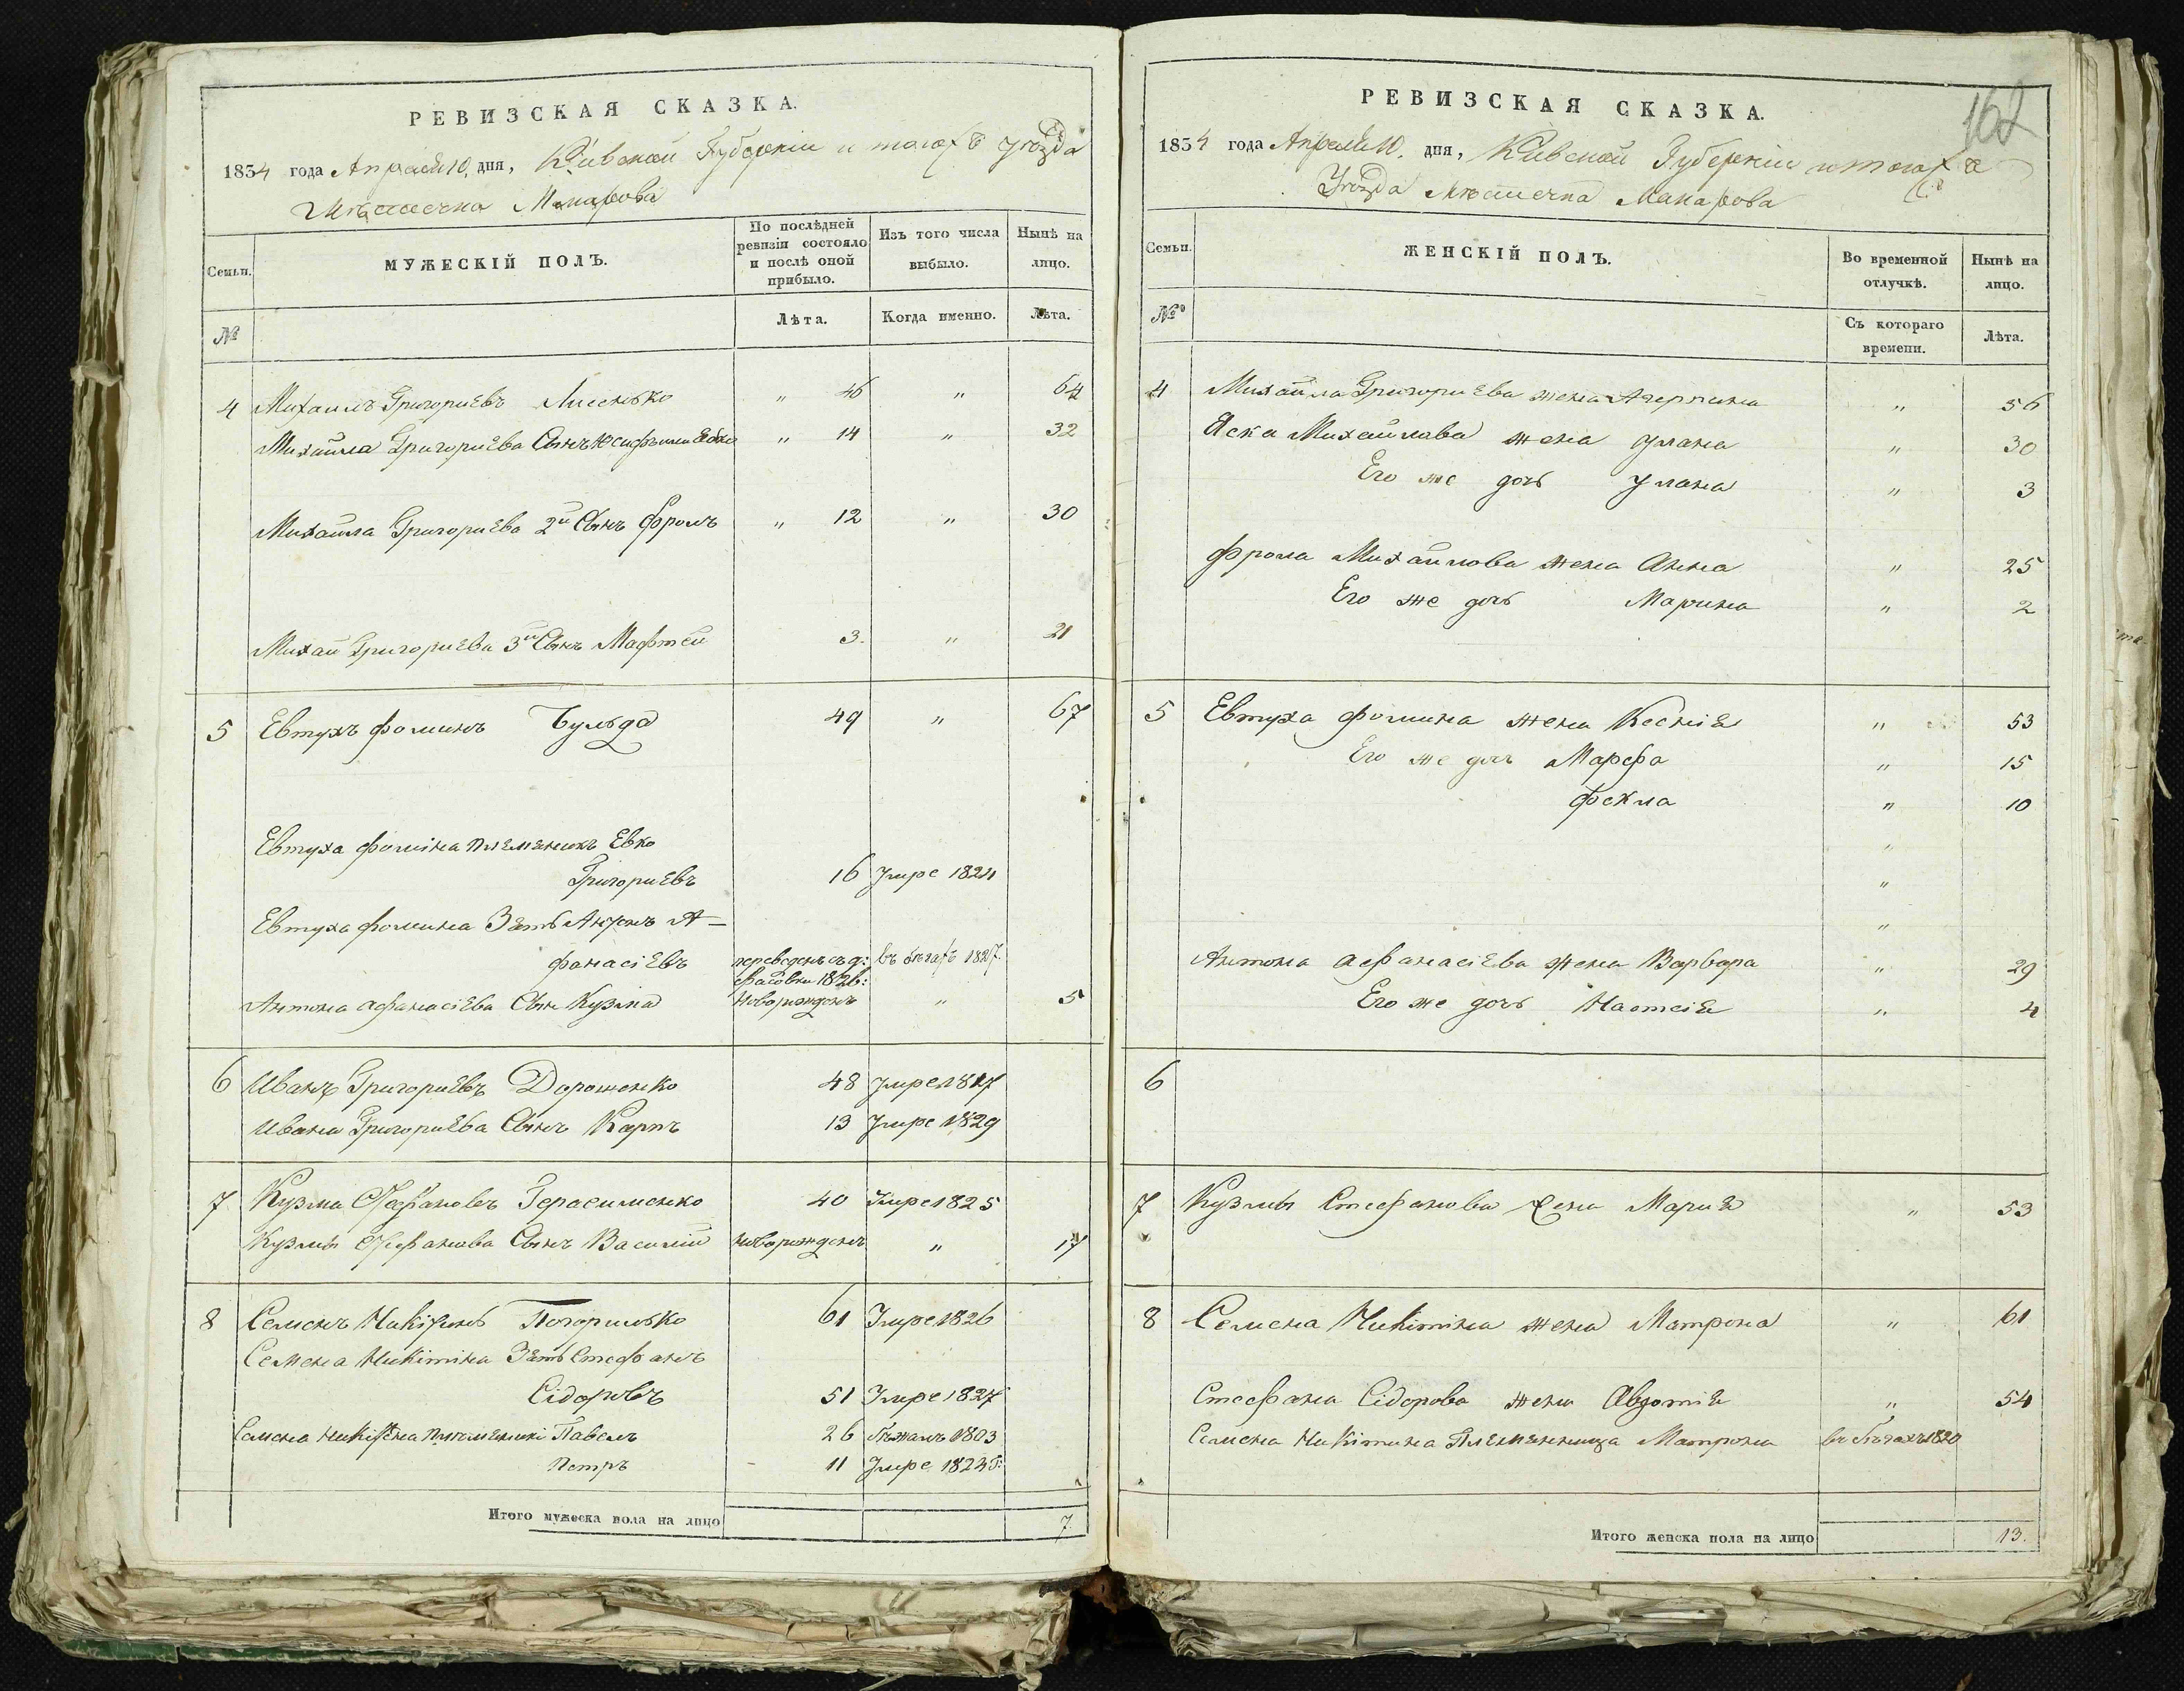 РЕВИЗСКАЯ СКАЗКА.
1834 года Апреля 10, дня, Кіевской Губерніи и тогожъ Уезда
Мѣстечка Макарова
Семьи. МУЖЕСКІЙ ПОЛЪ. По послѣдней ревизіи состояло и послѣ оной прибыло. Изъ того числа выбыло. Нынѣ на лицо.
№ Лѣта. Когда именно. Лѣта.
4 Михаилъ Григориевъ " 46 " 64
Михайла Григориева Сынъ " 14 " 32
Михайла Григориева 2й Сынъ Фролъ " 12 " 30
Михай Григориева 3й Сынъ Мафтей 3. " 21
5 Евтухъ Фоминъ Бульда 49 " 67
Евтуха Фоміна племянникъ Евко
Григориевъ 16 Умре 1824
Евтуха Фомина Зять Антонъ А-
фанасіевъ переведенъ съ д: въ бегахъ 1827.
1826:
Антона Афанасіева Сынъ Кузма новорожденъ " 5
6 Иванъ Григориевъ Дорошенко 48 Умре 1817
Ивана Григориева Сынъ Карпъ 13 Умре 1829
7 Кузма Стефановъ Герасименко 40 Умре 1825
Кузмы Стефанова Сынъ Василій новорожденъ " 17
8 Семенъ Никітинъ Погорилько 61 Умре 1826
Семена Никітина Зять Стефанъ
Сідоровъ 51 Умре 1827
Семена Никітина племянникі Павелъ 26 бѣжалъ 1803
Петръ 11 Умре 1823
Итого мужеска пола на лицо 7.
162
РЕВИЗСКАЯ СКАЗКА.
1834 года Апреля 10. дня, Кіевской Губерніи и тогожъ
Уезда Мѣстечка Макарова
Семьи. ЖЕНСКІЙ ПОЛЪ. Во временной отлучкѣ. Нынѣ на лицо.
№ Съ котораго времени. Лѣта.
4 Михайла Григориева жена Агерпина " 56
Яска Михайлава жена Уляна " 30
Его же дочь Уляна " 3
Фрола Михайлова жена Анна " 25
Его же дочь Марина " 2
5 Евтуха Фомина жена Ксенія " 53
Его же дочь Марфа " 15
Фекла " 10
"
"
"
Антона Афанасіева жена Варвара " 29
Его же дочь Настсія " 4
6
7 Кузмы Стефанова Жена Мария " 53
8 Семена Никітина жена Матрона " 61
Стефана Сідорова жена Авдотія " 54
Семена Никитина Племянница Матрона въ бѣгахъ 1820
Итого женска пола на лицо 13.